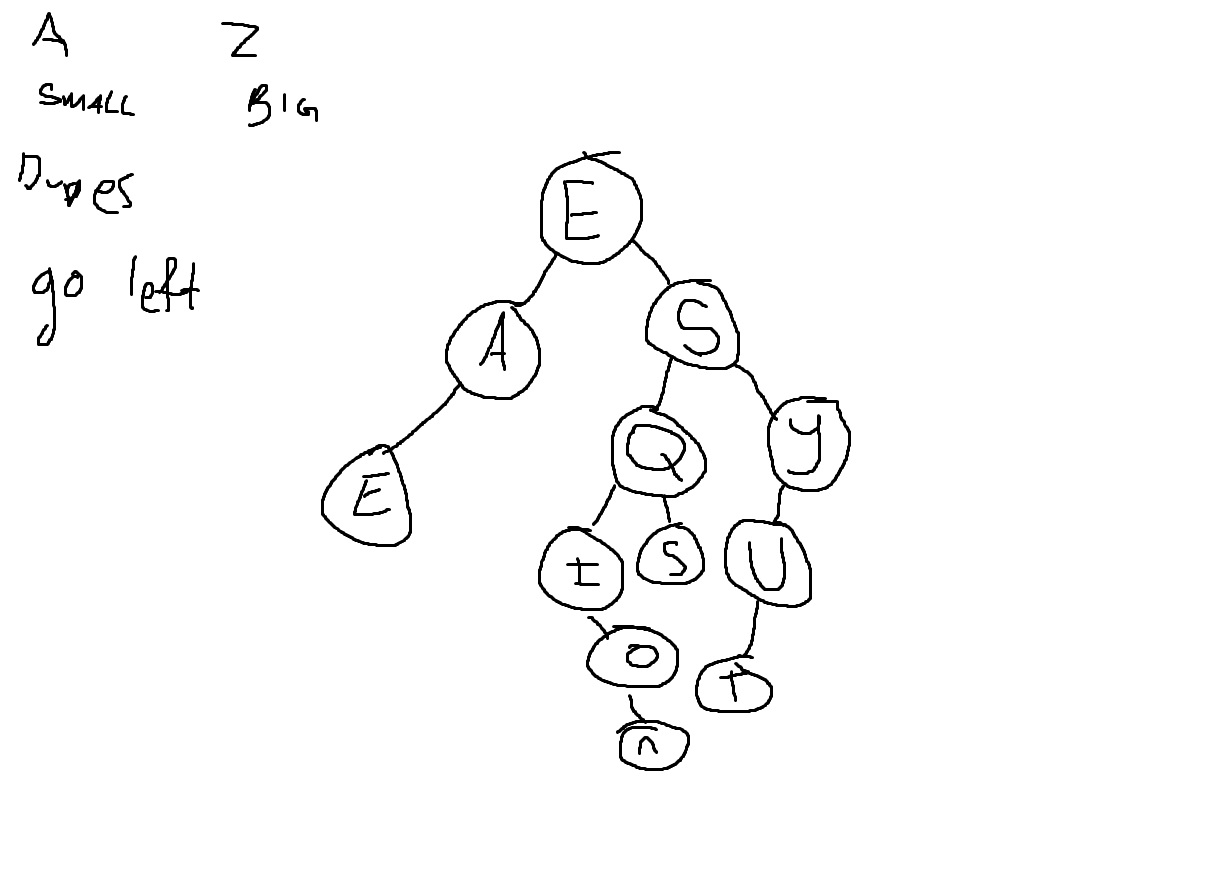 A Z
SMALL BIG
Dupes
go left
E
A S
E Q Y
I S U
O T
n